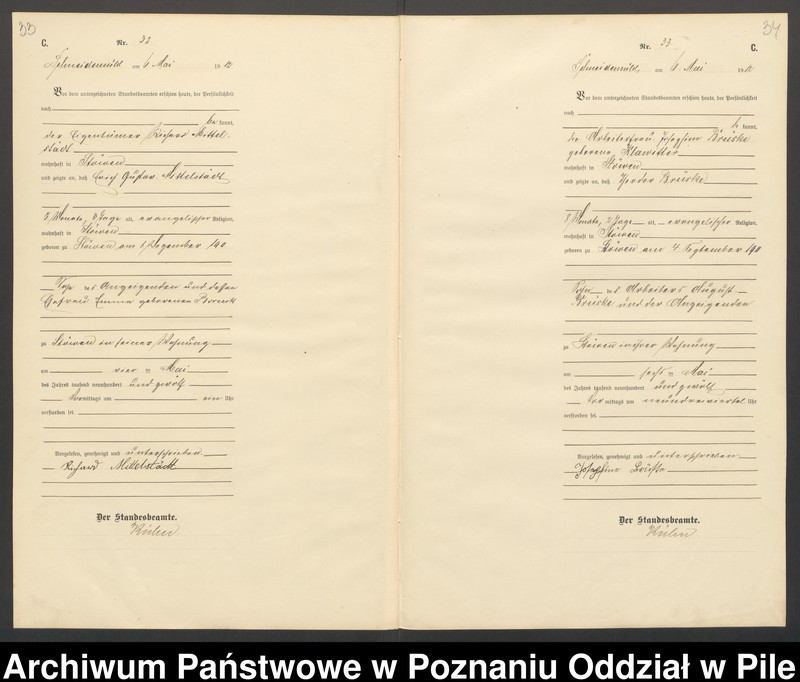 33
C.
Nr. 32
Schneidemühl am 6 Mai 1912
Vor dem unterzeichneten Standesbeamten erschien heute, der Persönlichkeit
nach
be kannt,
der Eigentümer Richard Mittel-
städt
wohnhaft in Stöwen
und zeigte an, daß Erich Gustav Mittelstädt
5 Monate, 3 Tage alt, evangelischer Religion,
wohnhaft in Stöwen
geboren zu Stöwen am 1 Dezember 1911
Sohn des Anzeigenden und dessen
Ehefrau Emma geborenen
zu Stöwen in seiner Wohnung
am vier ten Mai
des Jahres tausend neunhundert und zwölf
Vormittags um ein Uhr
verstorben sei.
Vorgelesen, genehmigt und unterschrieben.
Richard Mittelstädt
Der Standesbeamte.
34
C.
Nr. 33
Schneidemühl, am 6. Mai 1912
Vor dem unterzeichneten Standesbeamten erschien heute, der Persönlichkeit
nach
be kannt,
die Arbeiterfrau Josephine Brieske
geborene Klawitter
wohnhaft in Stöwen
und zeigte an, daß Theodor Brieske
8 Monate, 2 Tage alt, evangelischer Religion,
wohnhaft in Stöwen
geboren zu Stöwen am 4. September 1911
Sohn des Arbeiters August
Brieske und der Anzeigenden
zu Stöwen in ihrer Wohnung
am sechs ten Mai
des Jahres tausend neunhundert und zwölf
Vor mittags um neundreiviertel Uhr
verstorben sei.
Vorgelesen, genehmigt und unterschrieben.
Josephine Brieske
Der Standesbeamte.
Archiwum Państwowe w Poznaniu Oddział w Pile